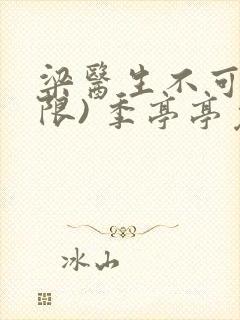 梁醫生不可
限) 季亭亭
冰山